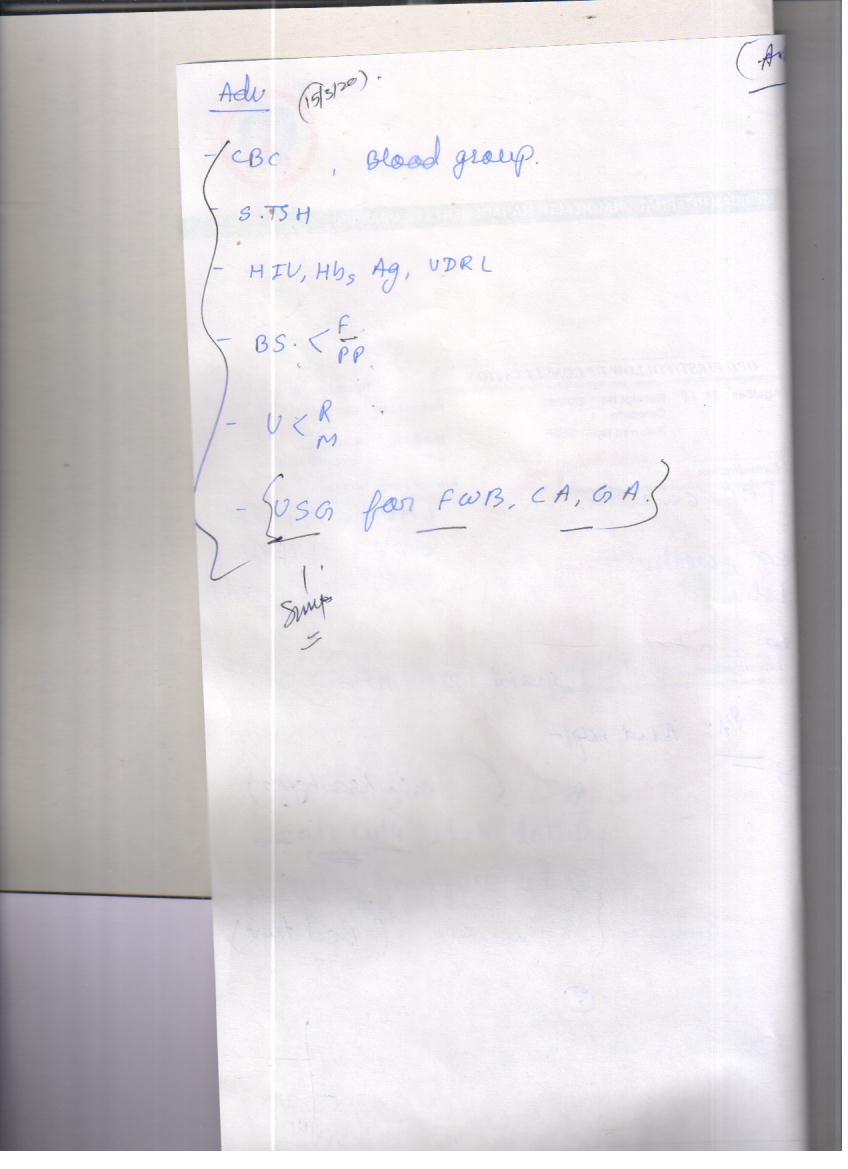 Adv (15/3/20).
(A
- CBC, Blood group.
- S.TSH
- HIV, Hbs Ag, VDRL
- BS. < F
PP
- U < R
M
- {USG for FWB, CA, GA.}